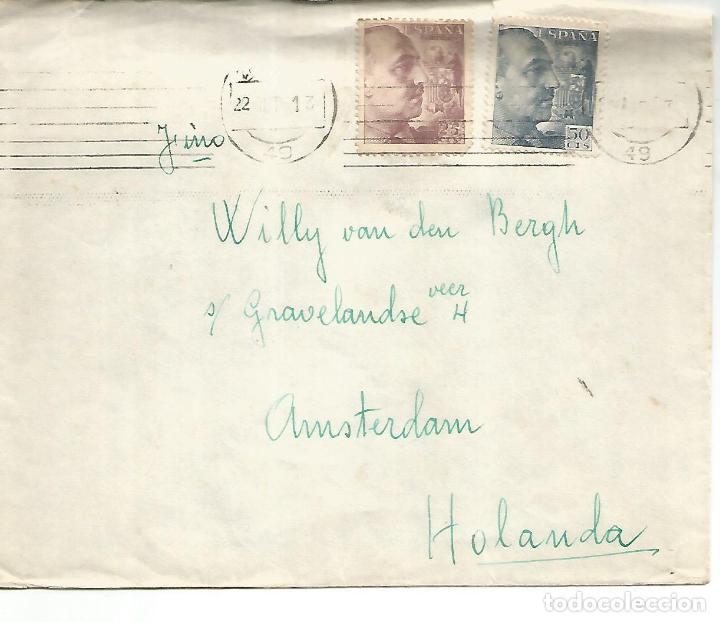 ESPAÑA ESPAÑA
22 13
25 50
CTS
49 49
Willy van den Bergh
veer
s/ Gravelandse 4
Amsterdam
Holanda
todocoleccion